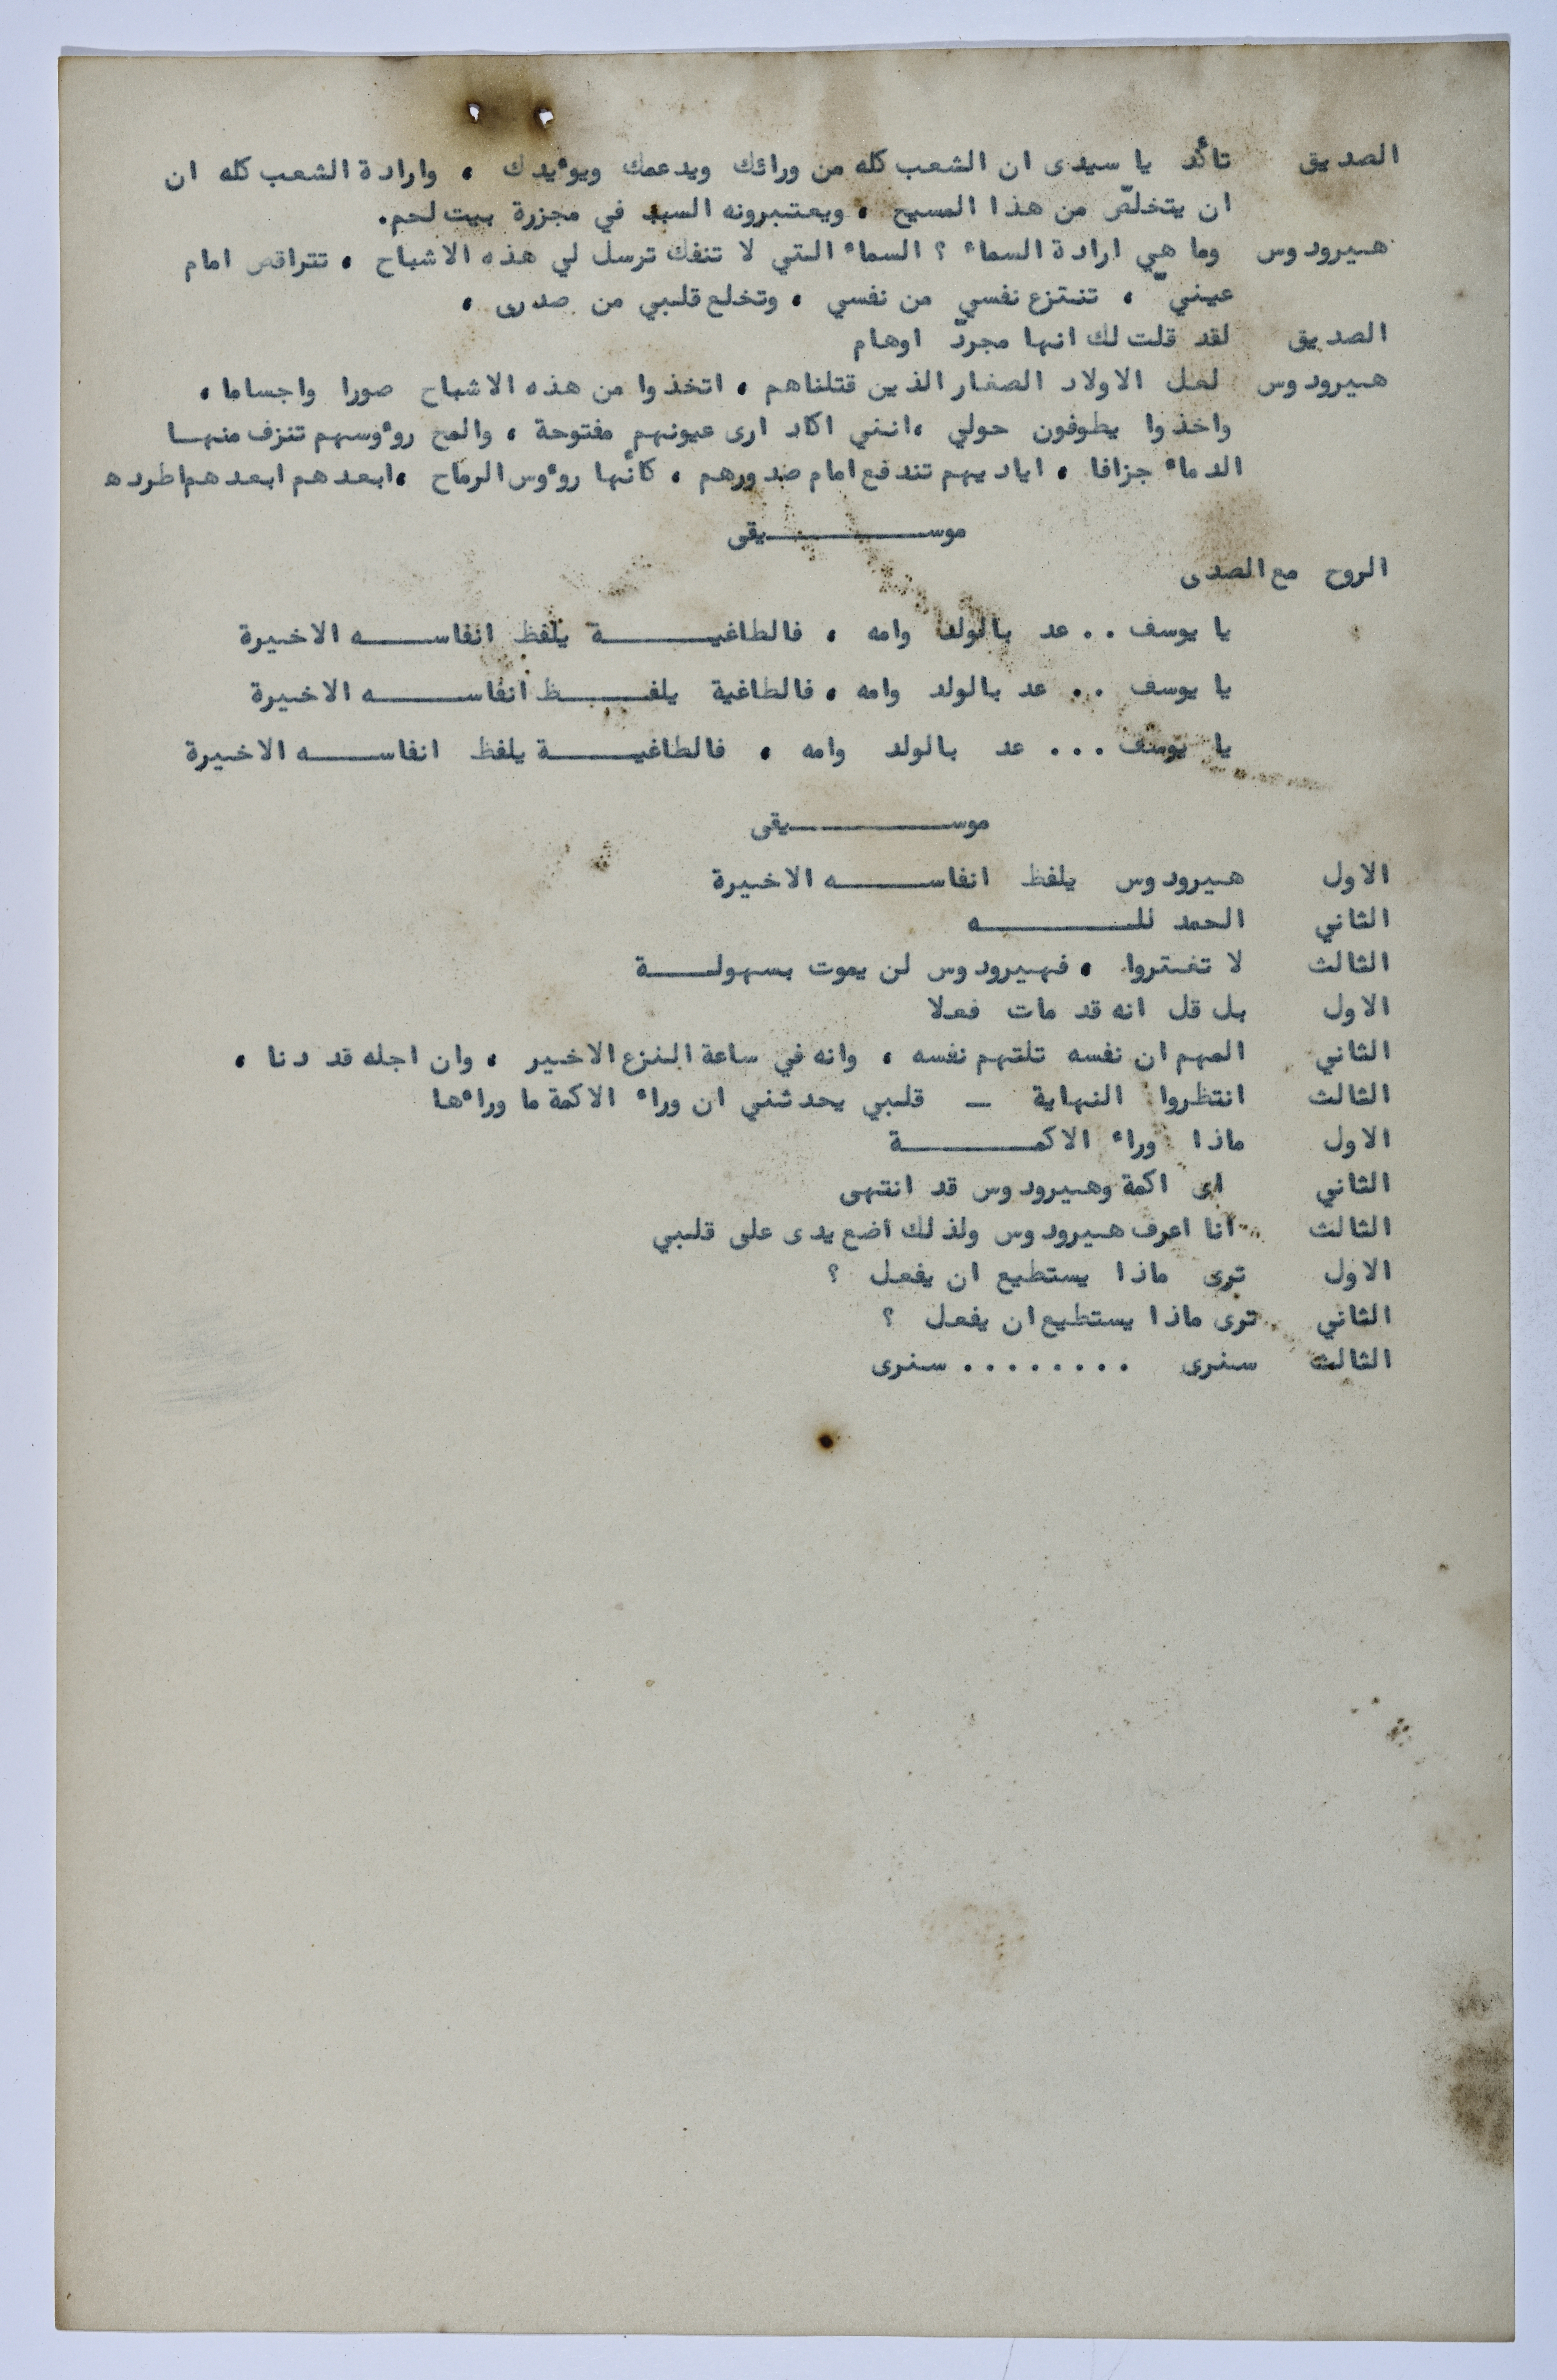 الصديق تأكد يا سيدى ان الشعب كله من ورائك ويدعمك ويوءيدك ، وارادة الشعب كله ان
ان يتخلصّ من هذا المسيح ، ويعتبرونه السبب في مجزرة بيت لحم.
هيرودوس وما هي ارادة السماء ؟ السماء التي لا تنفك ترسل لي هذه الاشباح ، تتراقص امام
عينيّ ، تنتزع نفسي من نفسي ، وتخلع قلبي من صدرى ،
الصديق لقد قلت لك انها مجردّ اوهام
هيرودوس لعل الاولاد الصغار الذين قتلناهم ، اتخذوا من هذه الاشباح صورا واجساما ،
واخذوا يطوفون حولي ،انني اكاد ارى عيونهم مفتوحة ، والمح روءوسهم تنزف منهـا
الدماء جزافا ، اياديهم تندفع امام صدورهم ، كأنها روءوس الرماح ،ابعدهم ابعدهم اطرده
موســـــــــيقى
الروح مع الصدى
يا يوسف .. عد بالولد وامه ، فالطاغيـــــــة يلفظ انفاســـــه الاخيرة
يا يوسف .. عد بالولد وامه ، فالطاغية يلفـــــظ انفاســـــه الاخيرة
يا يوسف ... عد بالولد وامه ، فالطاغيـــــة يلفظ انفاســـــه الاخيرة
موســـــــــيقى
الاول هيرودوس يلفظ انفاســـــه الاخيرة
الثاني الحمد للـــــــــه
الثالث لا تغتروا ، فهيرودوس لن يموت بسهولـــة
الاول بل قل انه قد مات فعلا
الثاني المهم ان نفسه تلتهم نفسه ، وانه في ساعة النزع الاخير ، وان اجله قد دنا ،
الثالث انتظروا النهاية _ قلبي يحدثني ان وراء الاكمة ما وراءها
الاول ماذا وراء الاكمـــــــة
الثاني اى اكمة وهيرودوس قد انتهى
الثالث انا اعرف هيرودوس ولذلك اضع يدى على قلبي
الاول ترى ماذا يستطيع ان يفعل ؟
الثاني ترى ماذا يستطيع ان يفعل ؟
الثالث سنرى ........ سنرى